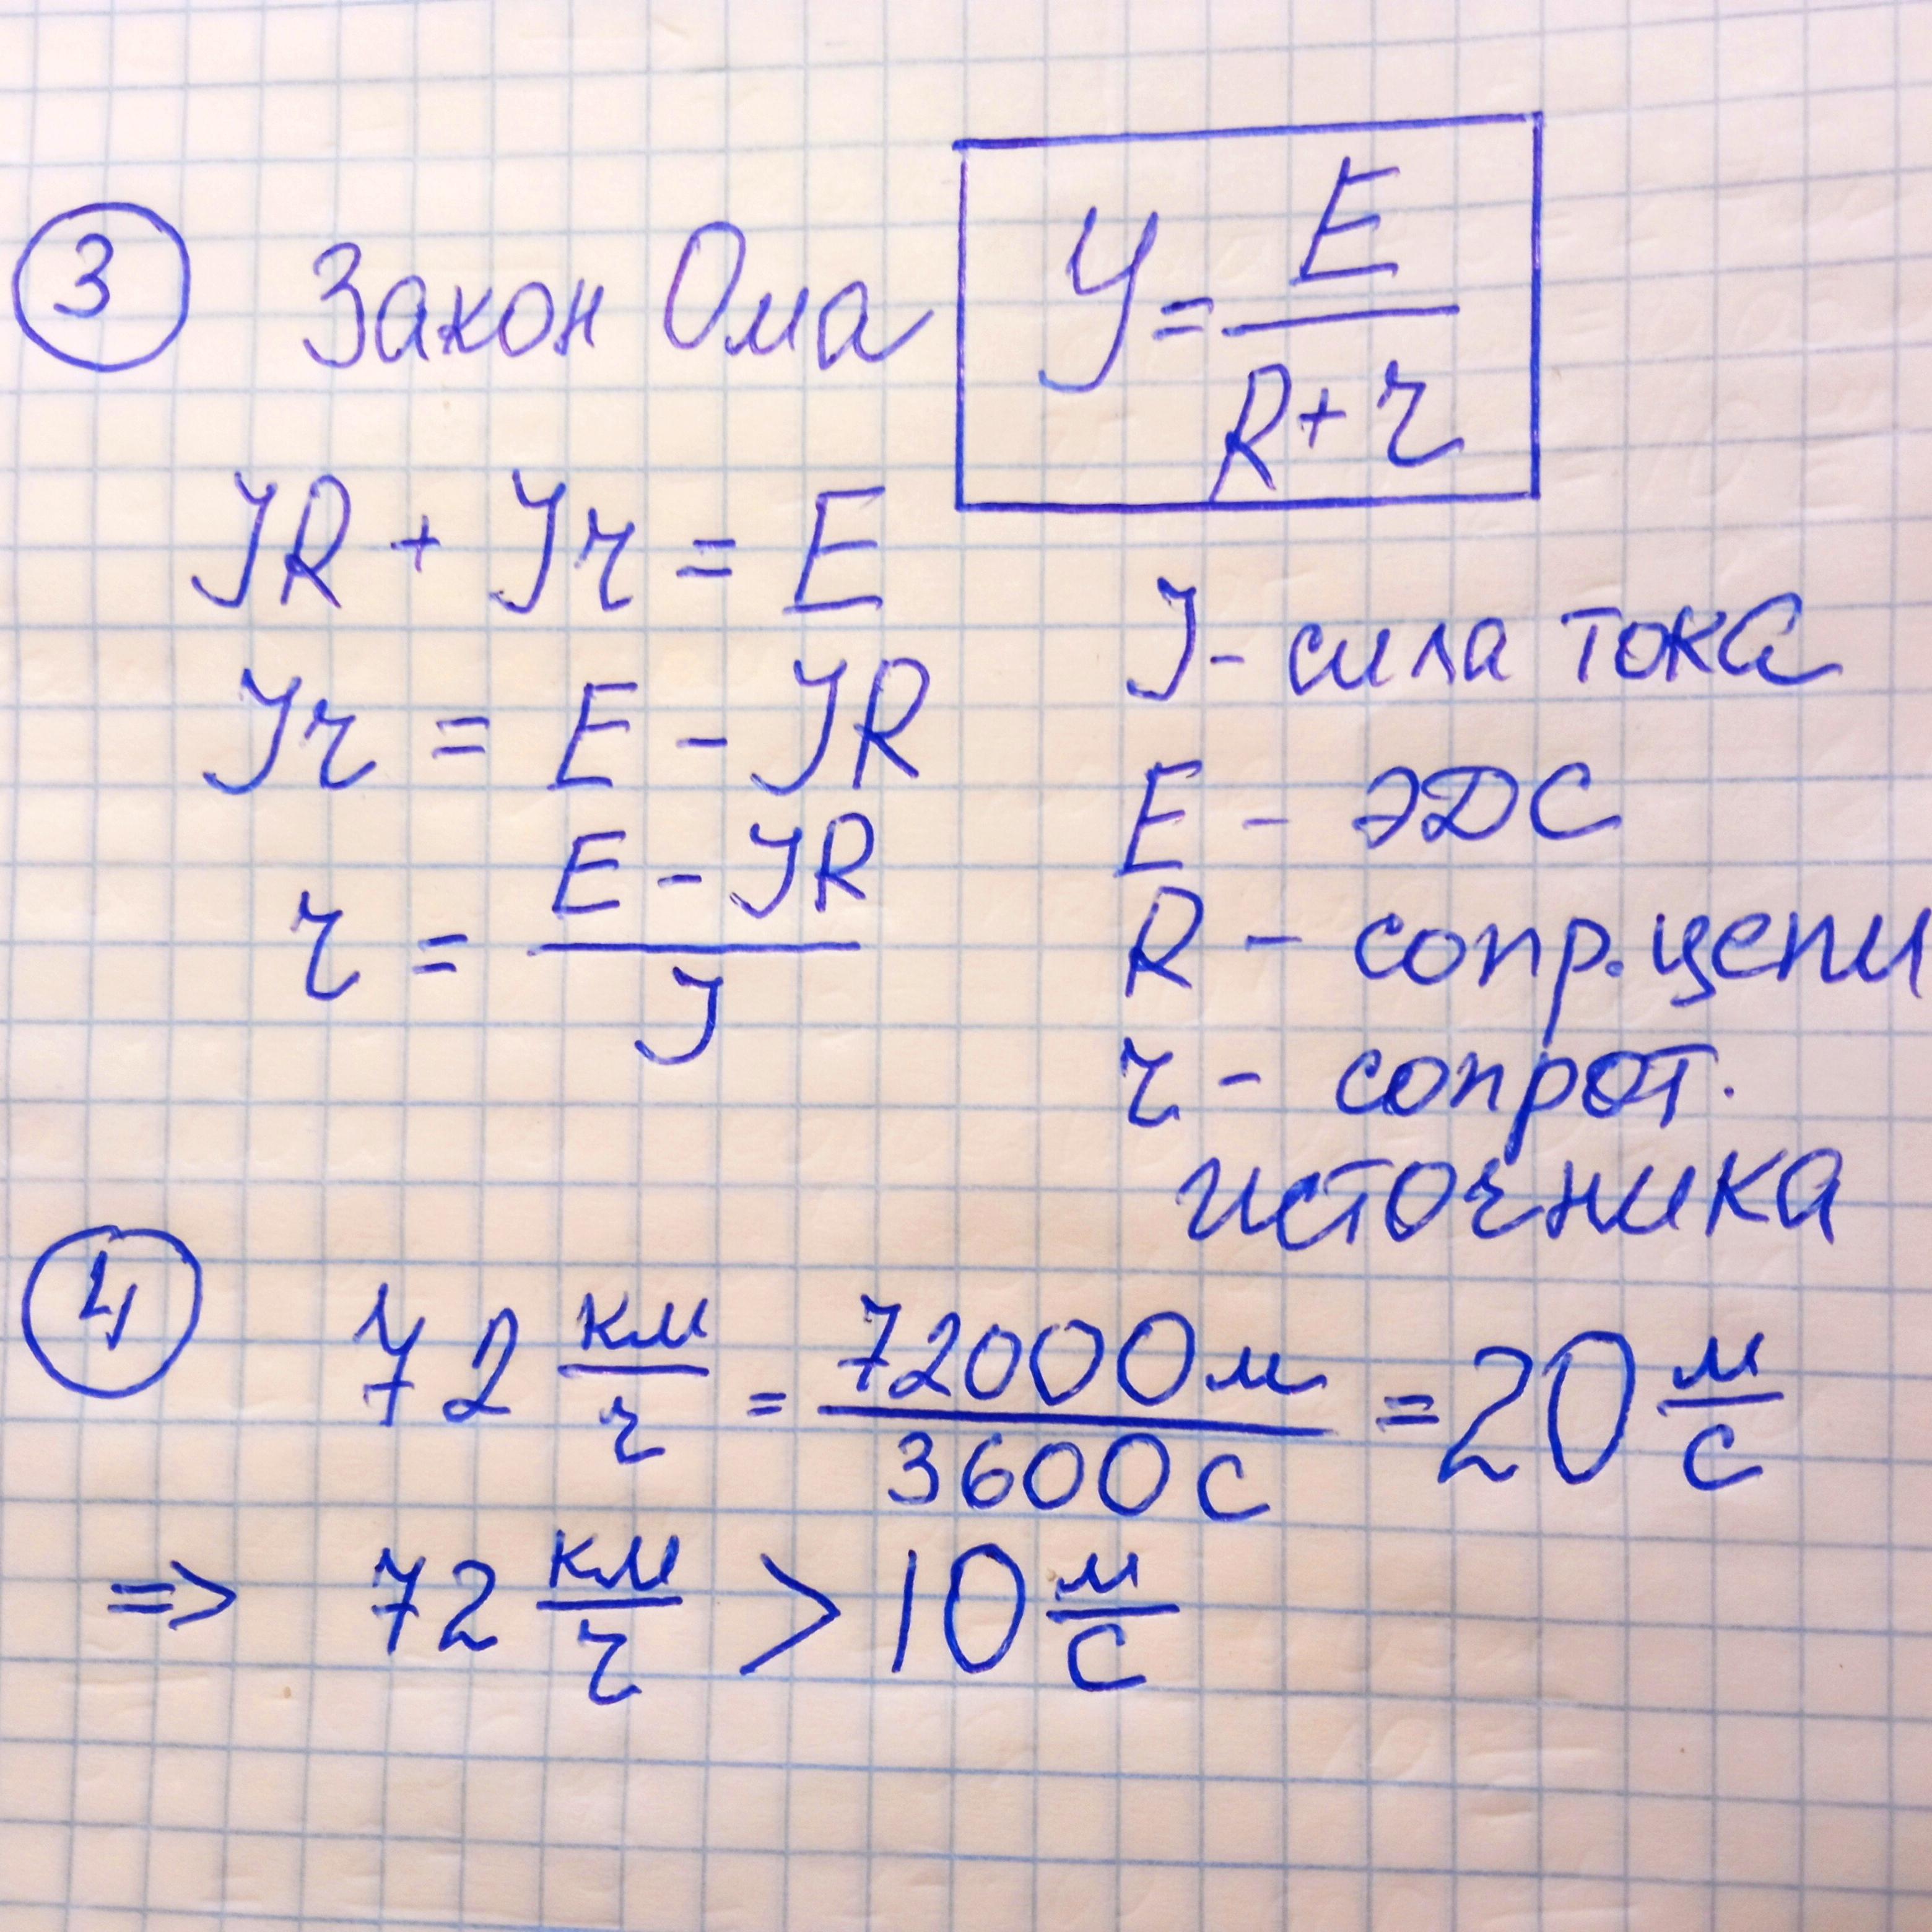 ③ Закон Ома
J = E / (R + r)
JR + Jr = E
Jr = E - JR
r = (E - JR) / J
J - сила тока
E - ЭДС
R - сопр. цепи
r - сопрот.
источника
④ 72 км/ч = 72000 м / 3600 с = 20 м/с
=> 72 км/ч > 10 м/с